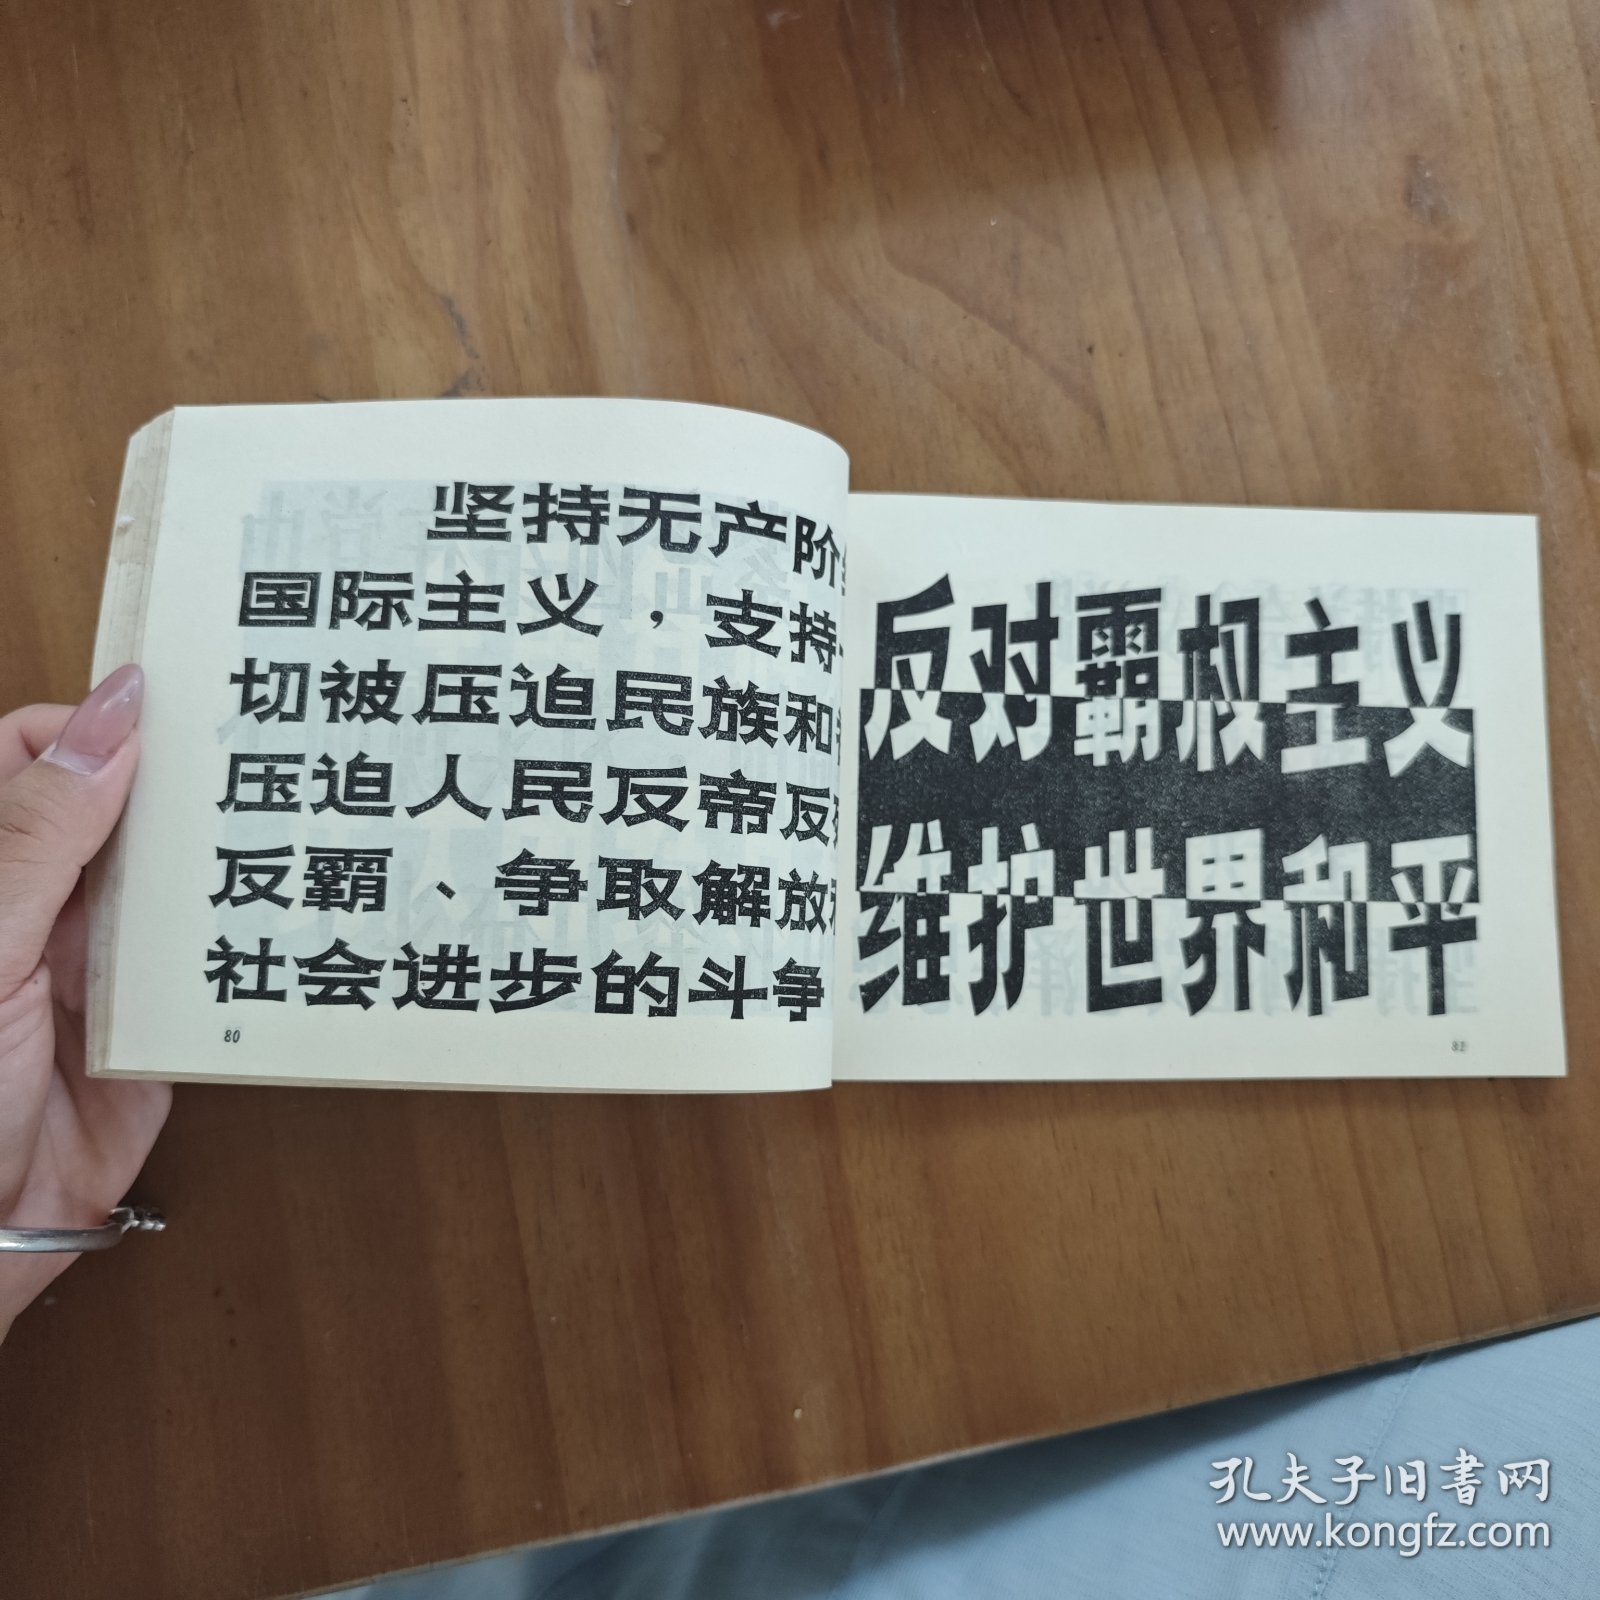 坚持无产阶
国际主义，支持
切被压迫民族和
压迫人民反帝反
反霸、争取解放
社会进步的斗争
80
反对霸权主义
维护世界和平
孔夫子旧书网
www.kongfz.com